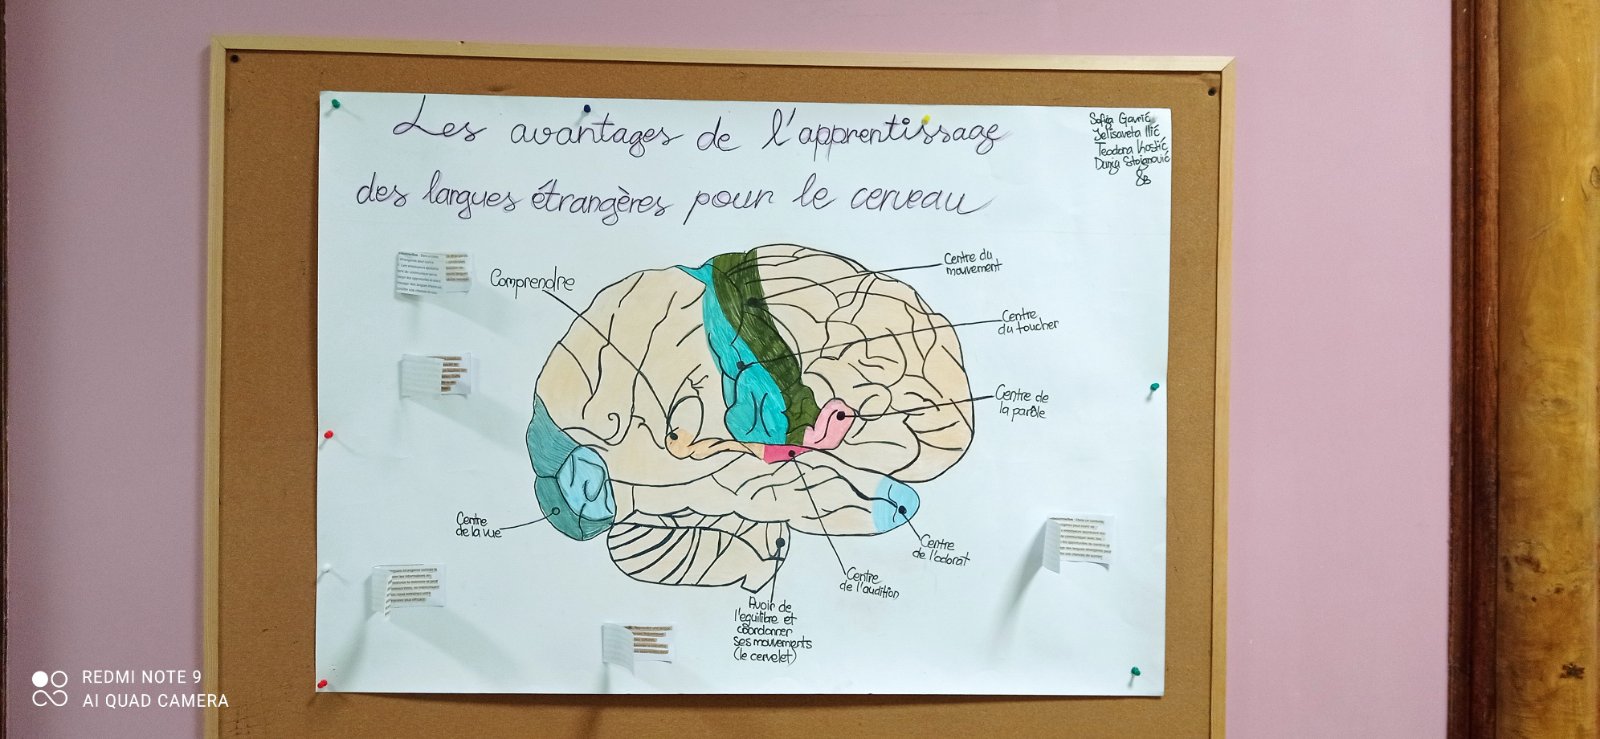 Les avantages de l'apprentissage
des langues étrangères pour le cerveau
Sofija Gavrić
Jelisaveta Ilić
Teodora Kostić
Dunja Stojanović
8B
Comprendre
Centre du
mouvement
Centre
du toucher
Centre de
la parôle
Centre
de la vue
Centre
de l'odorat
Centre
de l'audition
Avoir de
l'equilibre et
coordonner
ses mouvements
(le cervelet)
REDMI NOTE 9
AI QUAD CAMERA